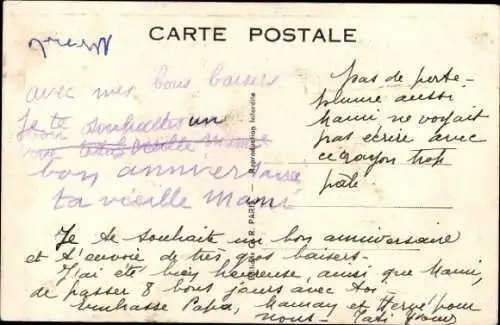 CARTE POSTALE
avec mes bons baisers
Je te souhaites un
bon anniversaire
ta vieille Mami
pas de porte-
plume aussi
Mami ne voyait
pas écrire avec
ce crayon trop
pâle
R. PARIS - Reproduction Interdite
Je te souhaite un bon anniversaire
et t'envoie de très gros baisers.
J'ai été bien heureuse, ainsi que Mami,
de passer 8 bons jours avec toi
embrasse Papa, Maman et Hervé pour
nous - Tati